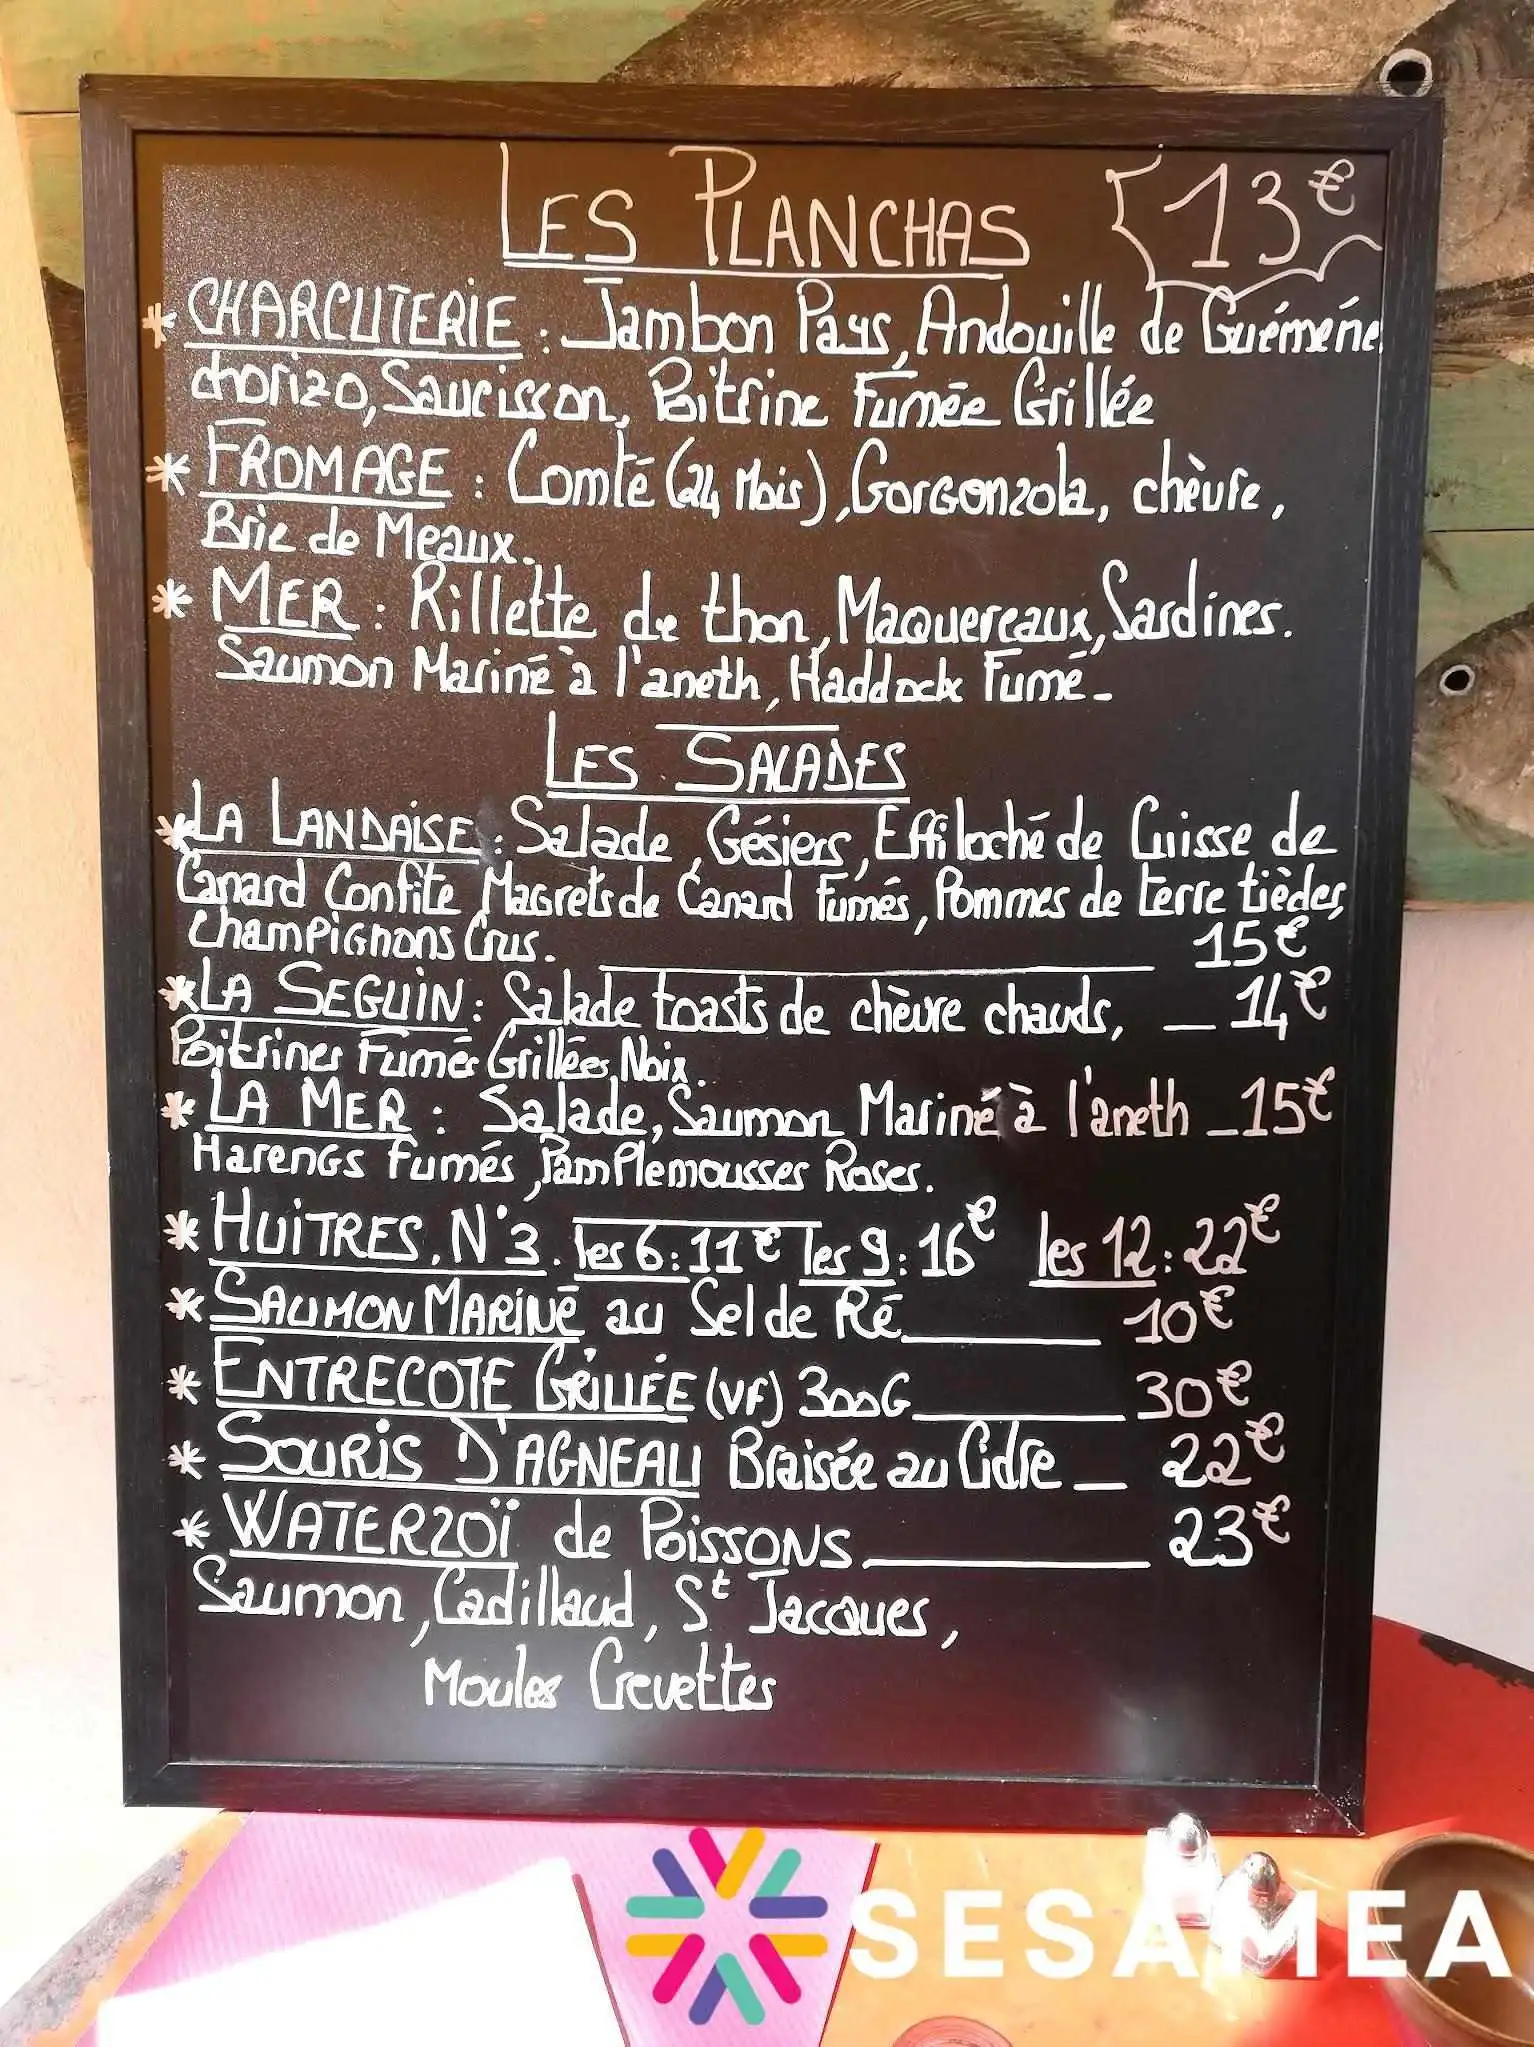 LES PLANCHAS 13€
* CHARCUTERIE : Jambon Pays, Andouille de Guémené,
chorizo, Saucisson, Poitrine Fumée Grillée
* FROMAGE : Comté (24 Mois), Gorgonzola, chèvre,
Brie de Meaux.
* MER : Rillette de thon, Maquereaux, Sardines.
Saumon Mariné à l'aneth, Haddock Fumé_
LES SALADES
* LA LANDAISE : Salade, Gésiers, Effiloché de Cuisse de
Canard Confite Magrets de Canard Fumés, Pommes de terre tièdes,
Champignons Crus. 15€
* LA SEGUIN : Salade toasts de chèvre chauds, _ 14€
Poitrines Fumés Grillées, Noix.
* LA MER : Salade, Saumon Mariné à l'aneth _15€
Harengs fumés, Pamplemousses Roses.
* HUITRES. N°3. les 6 : 11€ les 9 : 16€ les 12 : 22€
* SAUMON MARINÉ au Sel de Ré 10€
* ENTRECOTE GRILLÉE (VF) 300G 30€
* SOURIS D'AGNEAU Braisée au Cidre _ 22€
* WATERZOÏ de Poissons 23€
Saumon, Cadillaud, St Jacques,
Moules Crevettes
SESAMEA